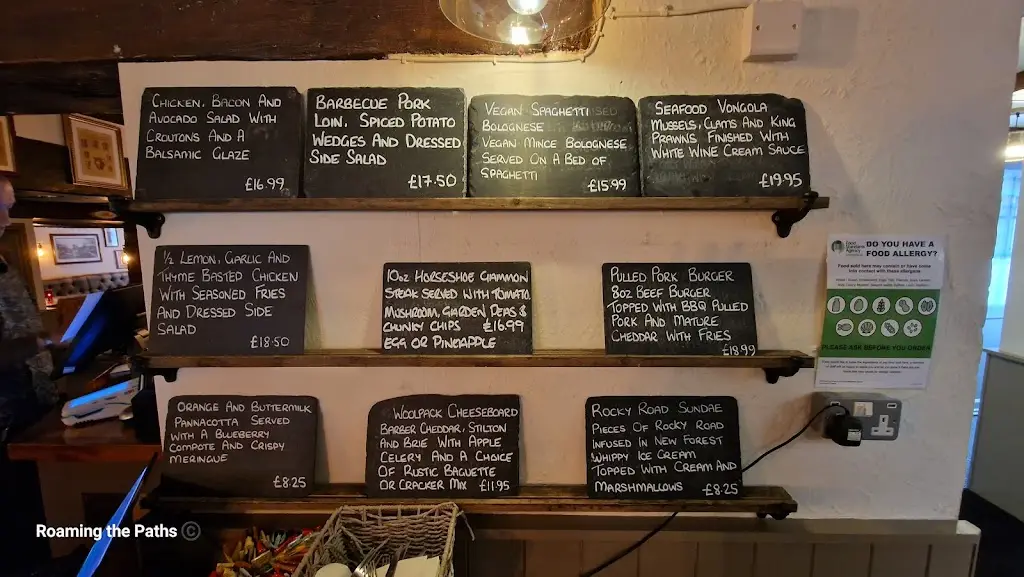 CHICKEN, BACON AND
AVOCADO SALAD WITH
CROUTONS AND A
BALSAMIC GLAZE
£16.99
BARBECUE PORK
LOIN, SPICED POTATO
WEDGES AND DRESSED
SIDE SALAD
£17.50
VEGAN SPAGHETTI
BOLOGNESE
VEGAN MINCE BOLOGNESE
SERVED ON A BED OF
SPAGHETTI
£15.99
SEAFOOD VONGOLA
MUSSELS, CLAMS AND KING
PRAWNS FINISHED WITH
WHITE WINE CREAM SAUCE
£19.95
½ LEMON, GARLIC AND
THYME BASTED CHICKEN
WITH SEASONED FRIES
AND DRESSED SIDE
SALAD
£18.50
10oz HORSESHOE GAMMON
STEAK SERVED WITH TOMATO,
MUSHROOM, GARDEN PEAS &
CHUNKY CHIPS £16.99
EGG OR PINEAPPLE
PULLED PORK BURGER
8oz BEEF BURGER
TOPPED WITH BBQ PULLED
PORK AND MATURE
CHEDDAR WITH FRIES
£18.99
DO YOU HAVE A
FOOD ALLERGY?
Food sold here may contain or have come
into contact with these allergens
PLEASE ASK BEFORE YOU ORDER
ORANGE AND BUTTERMILK
PANNACOTTA SERVED
WITH A BLUEBERRY
COMPOTE AND CRISPY
MERINGUE
£8.25
WOOLPACK CHEESEBOARD
BARBER CHEDDAR, STILTON
AND BRIE WITH APPLE
CELERY AND A CHOICE
OF RUSTIC BAGUETTE
OR CRACKER MIX £11.95
ROCKY ROAD SUNDAE
PIECES OF ROCKY ROAD
INFUSED IN NEW FOREST
WHIPPY ICE CREAM
TOPPED WITH CREAM AND
MARSHMALLOWS £8.25
Roaming the Paths ©